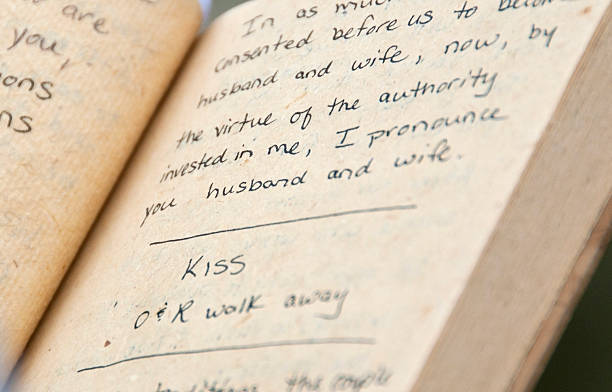 are
you,
ons
ns
In as much
consented before us to become
husband and wife, now, by
the virtue of the authority
invested in me, I pronounce
you husband and wife.
KISS
O & R walk away
the couple